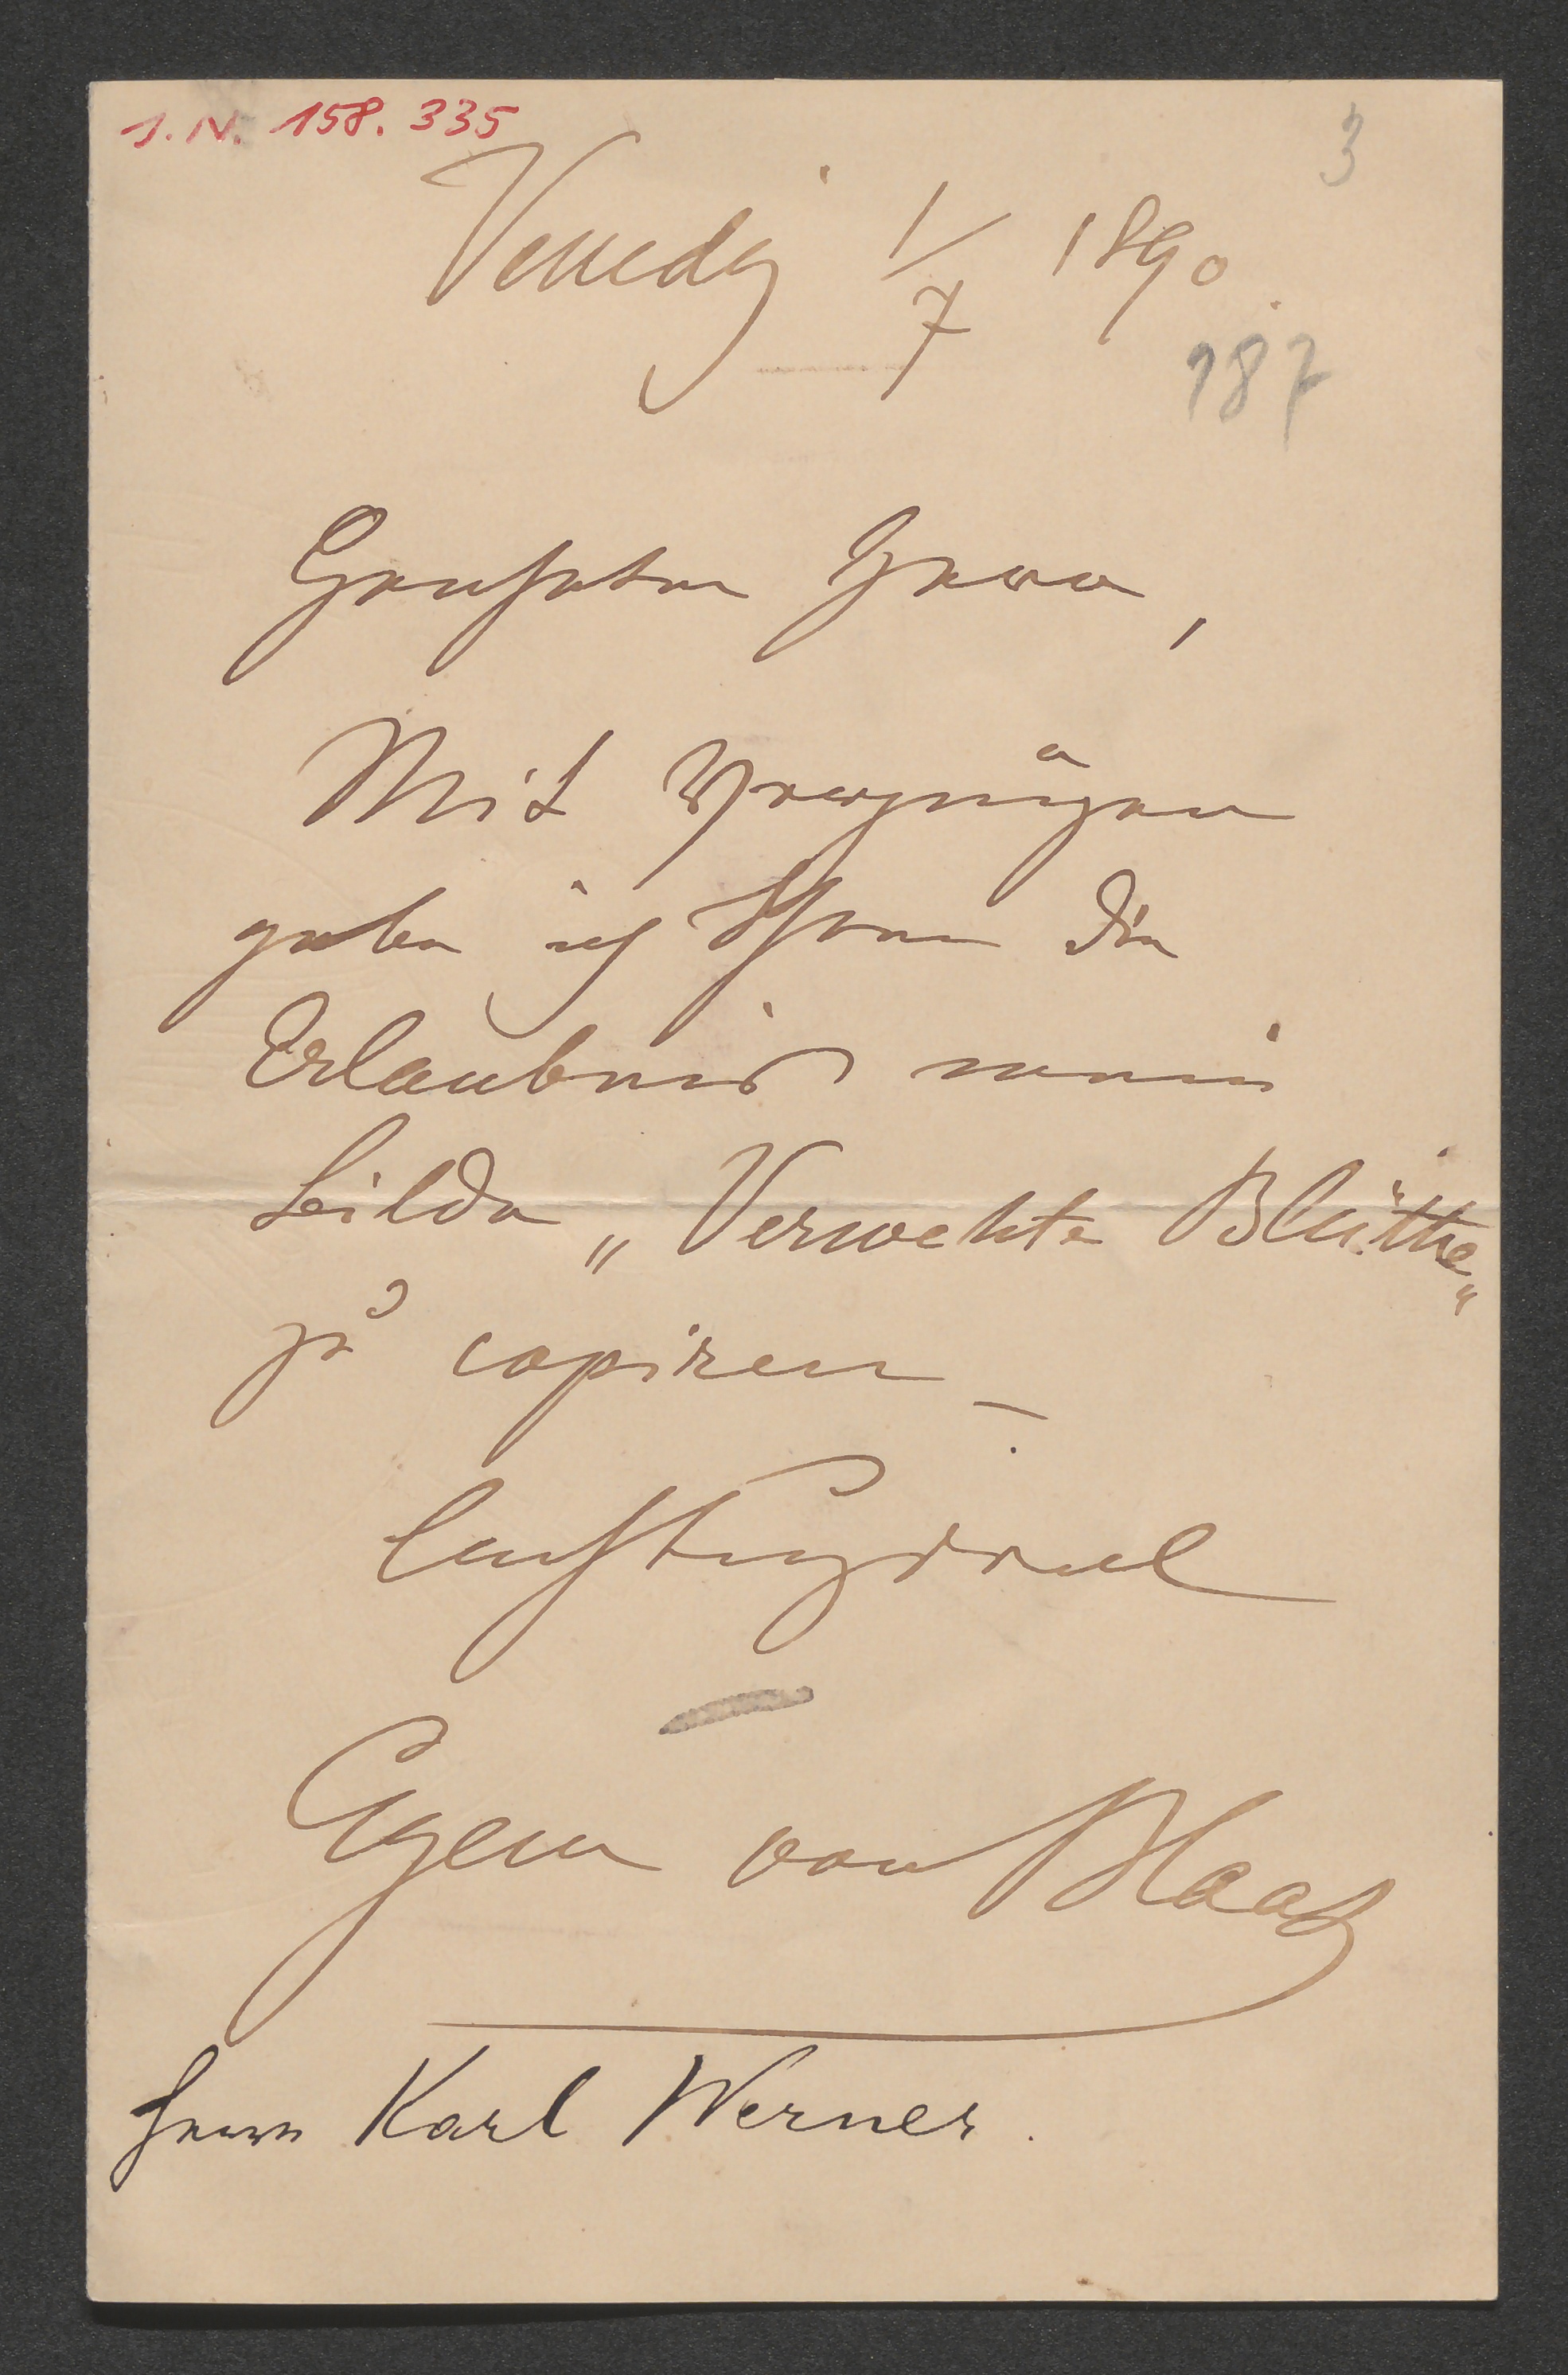 I. N. 158. 335
3
Venedig 1/7 1890.
187
Geehrter Herr,
Mit Vergnügen
gebe ich Ihnen die
Erlaubnis mein
Bilde „Verwehte Blüthe„
zu copiren –.
Eugen von Blaas
Herrn Karl Werner.